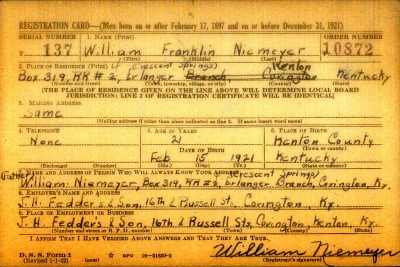 REGISTRATION CARD—(Men born on or after February 17, 1897 and on or before December 31, 1921)
SERIAL NUMBER 1. NAME (Print) ORDER NUMBER
T 137 William Franklin Niemeyer 10872
(First) (Middle) (Last)
2. PLACE OF RESIDENCE (Print) (Crescent Springs) Kenton
Box 319, RR # 2, Erlanger Branch, Covington Kentucky
[THE PLACE OF RESIDENCE GIVEN ON THE LINE ABOVE WILL DETERMINE LOCAL BOARD
JURISDICTION; LINE 2 OF REGISTRATION CERTIFICATE WILL BE IDENTICAL]
3. MAILING ADDRESS
Same
[Mailing address if other than place indicated on line 2. If same insert word same]
4. TELEPHONE 5. AGE IN YEARS 6. PLACE OF BIRTH
None 21 Kenton County
DATE OF BIRTH (Town or county)
Feb. 15 1921 Kentucky
(Exchange) (Number) (Mo.) (Day) (Yr.) (State or country)
7. NAME AND ADDRESS OF PERSON WHO WILL ALWAYS KNOW YOUR ADDRESS (Crescent Springs)
(Father)
William Niemeyer, Box 319, RR # 2, Erlanger Branch, Covington, Ky.
8. EMPLOYER'S NAME AND ADDRESS
J. H. Fedders & Son, 16th & Russell Sts, Covington, Ky.
9. PLACE OF EMPLOYMENT OR BUSINESS
J. H. Fedders & Son, 16th & Russell Sts., Covington, Kenton, Ky.
(Number and street or R. F. D. number) (Town) (County) (State)
I AFFIRM THAT I HAVE VERIFIED ABOVE ANSWERS AND THAT THEY ARE TRUE.
D. S. S. Form 1
(Revised 1-1-42) (over) GPO 16—21630-2 William Niemeyer
(Registrant's signature)